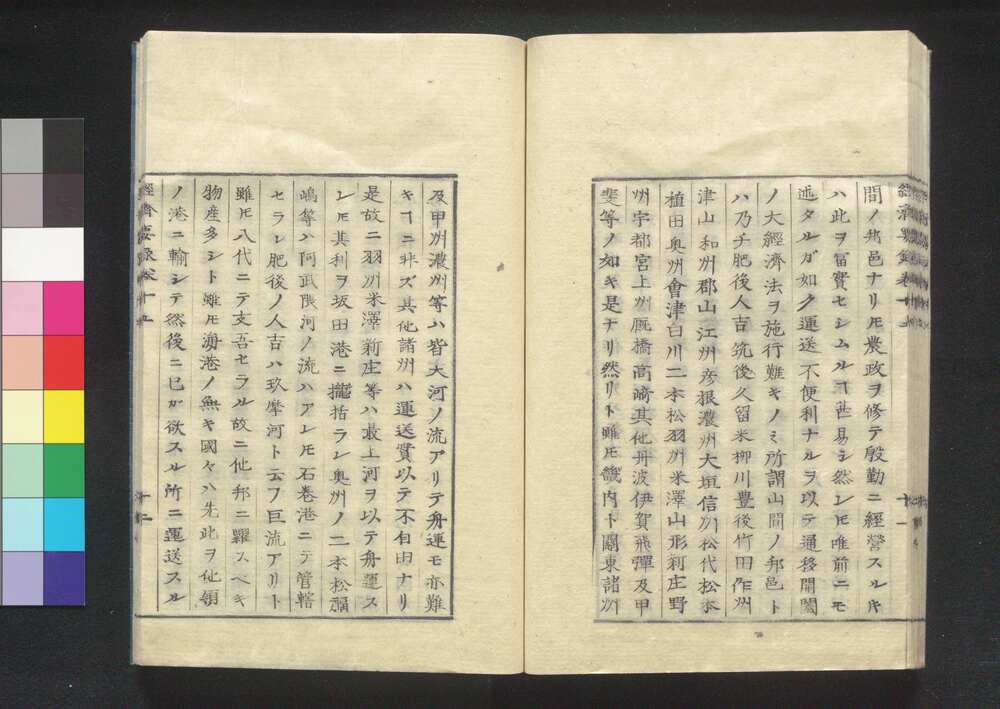 間ノ邦邑ナリ𪜈農政ヲ修テ殷勤ニ經營スルキ
ハ此ヲ冨實セシムルヿ甚易シ然レ𪜈唯前ニモ
述タルガ如ク運送不便利ナルヲ以テ通移開闔
ノ大經濟法ヲ施行難キノミ所謂山間ノ邦邑ト
ハ乃チ肥後人吉筑後久留米柳川豊後竹田作州
津山和州郡山江州彦根濃州大垣信州松代松本
植田奥州會津白川二本松羽州米澤山形新庄野
州宇都宮上州厩橋髙崎其他丹波伊賀飛彈及甲
斐等ノ如キ是ナリ然リト雖𪜈畿内ト關東諸州
及甲州濃州等ハ皆大河ノ流アリテ舟運モ亦難
キヿニ非ズ其他諸州ハ運送實以テ不自由ナリ
是故ニ羽州米澤新庄等ハ最上河ヲ以テ舟運ス
レ𪜈其利ヲ坂田港ニ攏括ラレ奥州ノ二本松福
嶋等ハ阿武隈河ノ流ハアレ𪜈石巻港ニテ管轄
セラレ肥後ノ人吉ハ玖摩河ト云フ巨流アリト
雖𪜈八代ニテ支吾セラル故ニ他邦ニ糶スベキ
物産多シト雖𪜈湊港ノ無キ國々ハ先此ヲ他領
ノ港ニ輸シテ然後ニ己ガ欲スル所ニ運送スル
經濟要録卷十二
十二